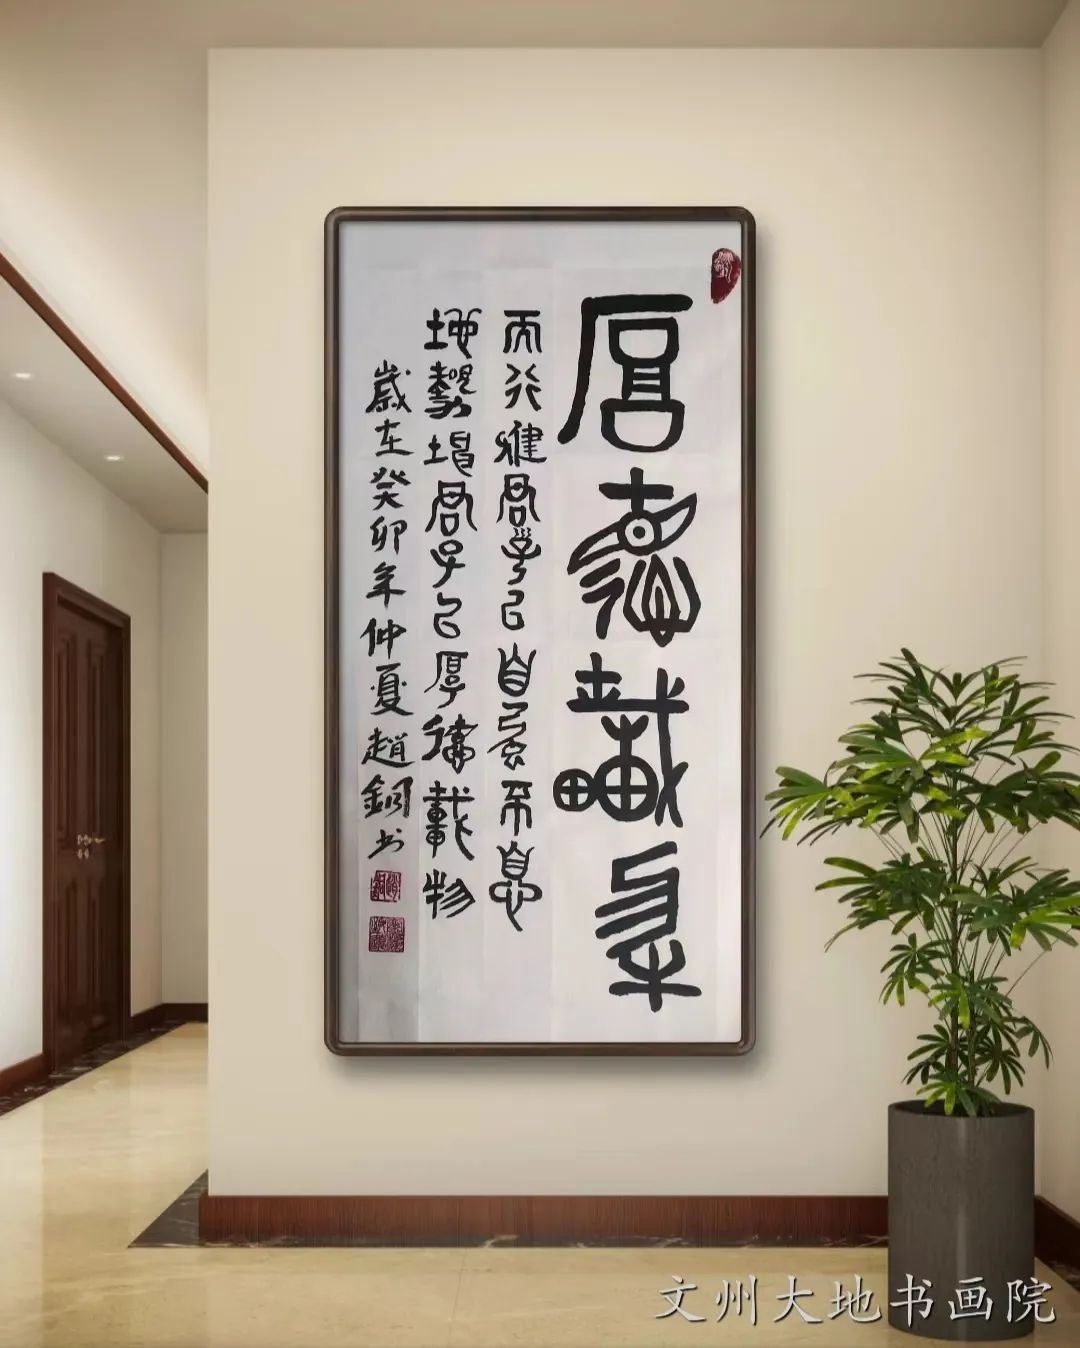 厚德載物
天行健君子以自強不息
地勢坤君子以厚德載物
歲在癸卯年仲夏趙鋼书
文州大地书画院